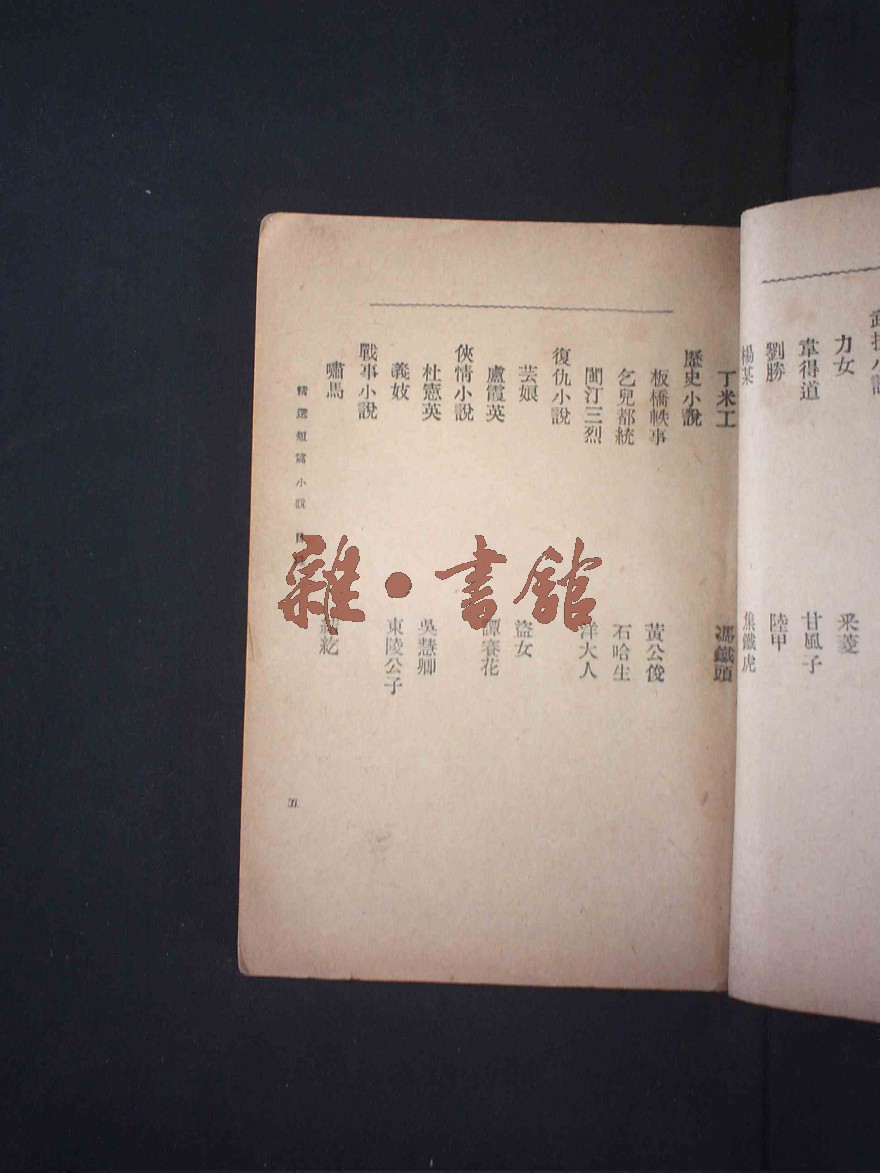 力女
采菱
韋得道
甘風子
劉勝
陸甲
楊某
焦鐵虎
丁米工
馮鐵頭
歷史小說
板橋軼事
黃公俊
乞兒都統
石哈生
閩汀三烈
洋大人
復仇小說
芸娘
盜女
盧霞英
譚賽花
俠情小說
杜憲英
吳慧卿
義妓
東陵公子
戰事小說
嘯馬
精選短篇小說
五
雜·書館